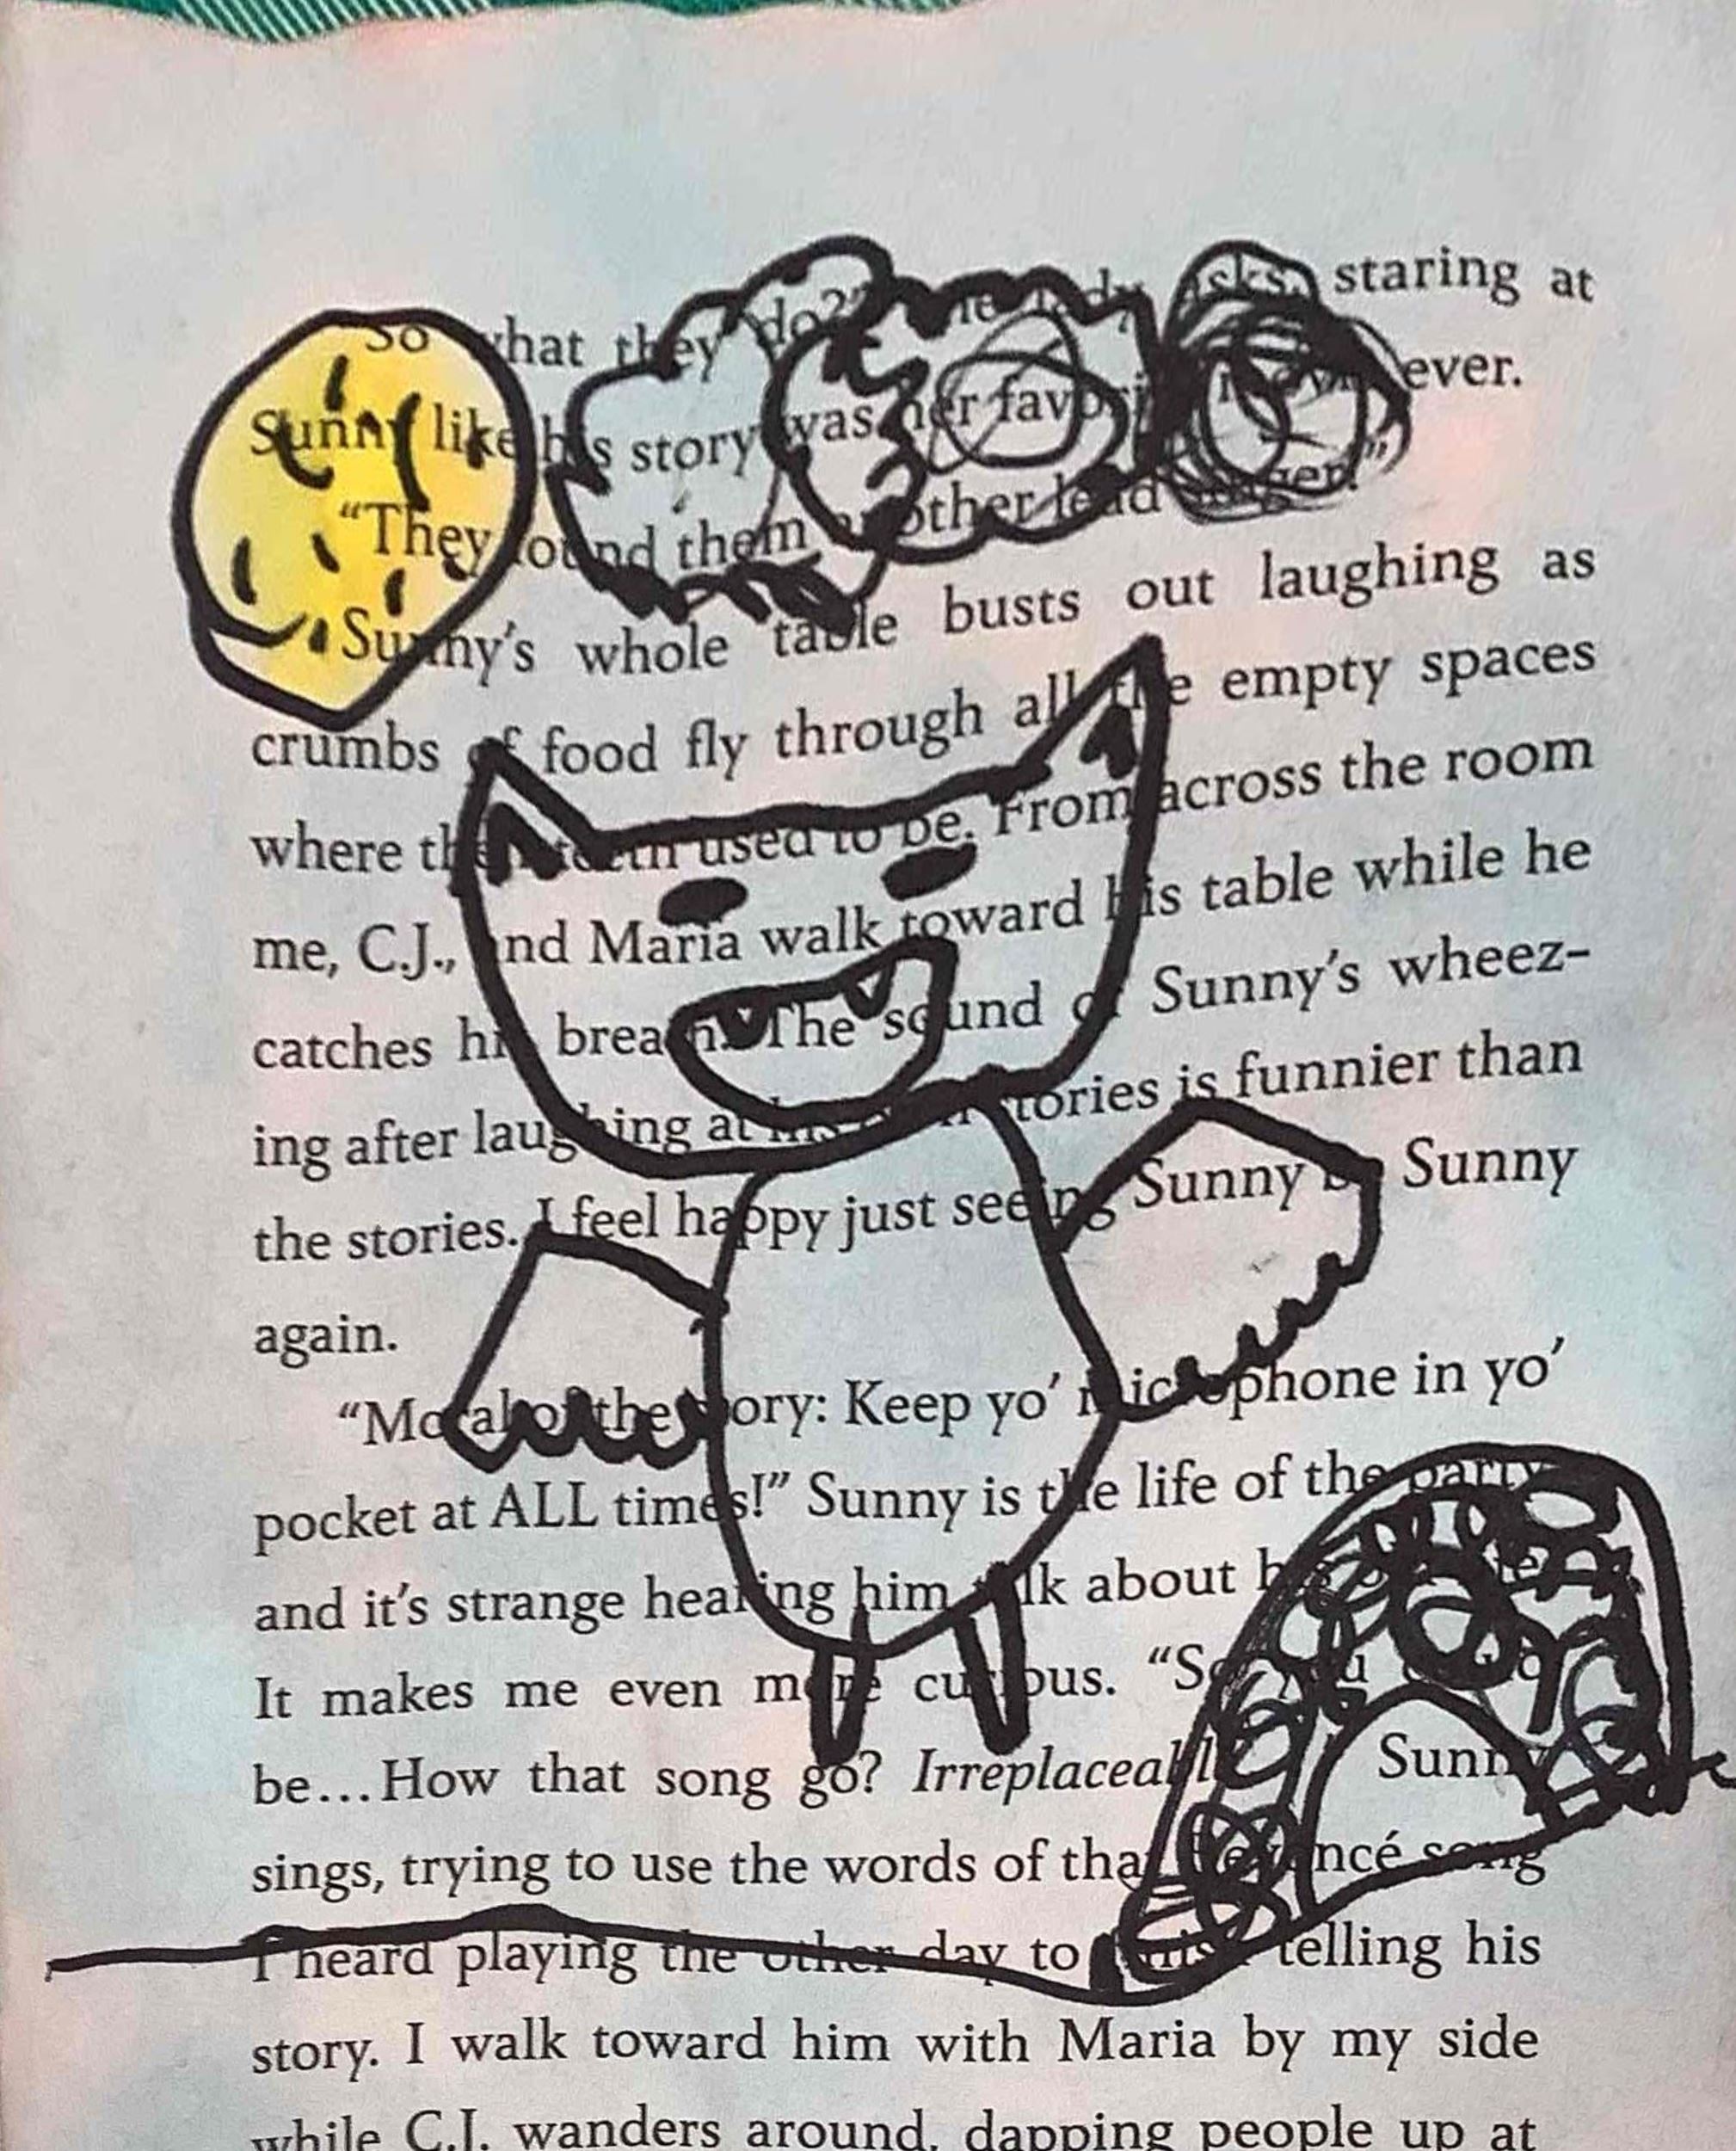 "So what they do?" the lady asks, staring at
Sunny like his story was her favorite movie ever.
"They found them another lead singer!"
Sunny's whole table busts out laughing as
crumbs of food fly through all the empty spaces
where their teeth used to be. From across the room
me, C.J., and Maria walk toward his table while he
catches his breath. The sound of Sunny's wheez-
ing after laughing at his own stories is funnier than
the stories. I feel happy just seeing Sunny be Sunny
again.
"Moral of the story: Keep yo' microphone in yo'
pocket at ALL times!" Sunny is the life of the party
and it's strange hearing him talk about his
It makes me even more curious. "So you
be...How that song go? Irreplaceable Sunny
sings, trying to use the words of that Beyoncé song
I heard playing the other day to telling his
story. I walk toward him with Maria by my side
while C.J. wanders around, dapping people up at